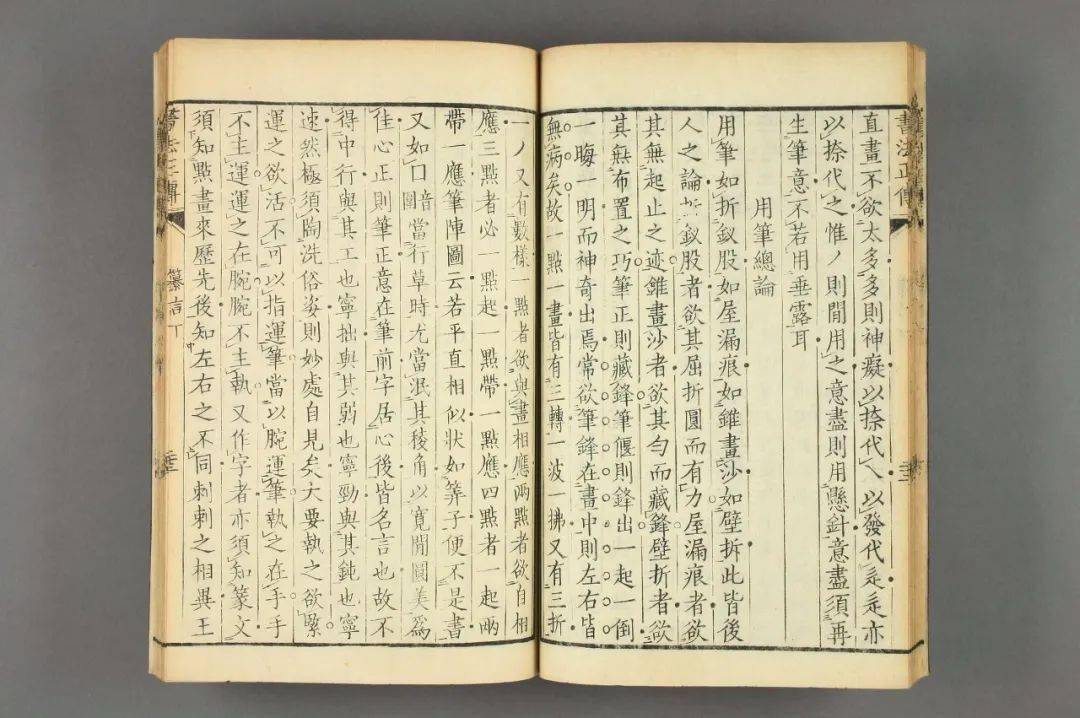 書法正傳
直畫不欲太多多則神癡以捺代乀以發代辵辵亦
以捺代之惟丿則間用之意盡則用懸針意盡須再
生筆意不若用垂露耳
用筆總論
用筆如折釵股如屋漏痕如錐畫沙如壁拆此皆後
人之論折釵股者欲其屈折圓而有力屋漏痕者欲
其無起止之迹錐畫沙者欲其勻而藏鋒壁折者欲
其無布置之巧筆正則藏鋒筆偃則鋒出一起一倒
一晦一明而神奇出焉常欲筆鋒在畫中則左右皆
無病矣故一點一畫皆有三轉一波一拂又有三折
一丿又有數樣一點者欲與畫相應兩點者欲自相
應三點者必一點起一點帶一點應四點者一起兩
帶一應筆陣圖云若平直相似狀如筭子便不是書
又如囗音圍當行草時尤當泯其稜角以寬閒圓美爲
佳心正則筆正意在筆前字居心後皆名言也故不
得中行與其工也寧拙與其弱也寧勁與其鈍也寧
速然極須陶洗俗姿則妙處自見矣大要執之欲緊
運之欲活不可以指運筆當以腕運筆執之在手手
不主運運之在腕腕不主執又作字者亦須知篆文
須知點畫來歷先後知左右之不同刺剌之相異王
書法正傳 纂言下